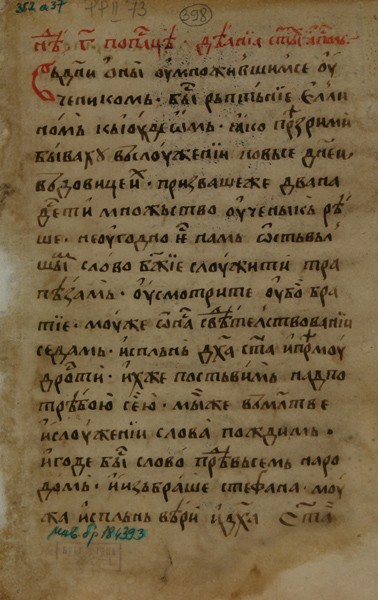 352 a 37 РР II 73 398
нⷣѣ г҃. по пасцѣ · дѣꙗнїа ст҃ыⷯ ап҃ль ·
Въ дн҃и ѻны ѹмножившимсе ѹ
ченикомь · бы́ рьптанїе елли
номь кь їѹдеѡмь · ꙗко прѣзрими
бывахѹ вь слѹженїи по вьсе дн҃еи
вьдовицеих · призвавше же двана
десети множьство ѹченыкь рѣ
ше · не ѹгодно к҃ намь ѡставьл
шіи слово бж҃їе слѹжити тра
пезамь · ѹсмотрите ѹбо бра
тїе · мѹже ѿ ва свѣдѣтелствовани
седамь · испльнь дх҃а ст҃а и прѣмѹ
дрости · ихже поставимь надь по
трѣбою сею · мы же вь мл҃твѣ
и слѹженїи слова пождимь ·
и годѣ бы́ слово прѣдь всемь наро
домь · и изьбраше стефана · мѹ
жа испльнь вѣри и дх҃а ст҃а
инв. бр. 184393